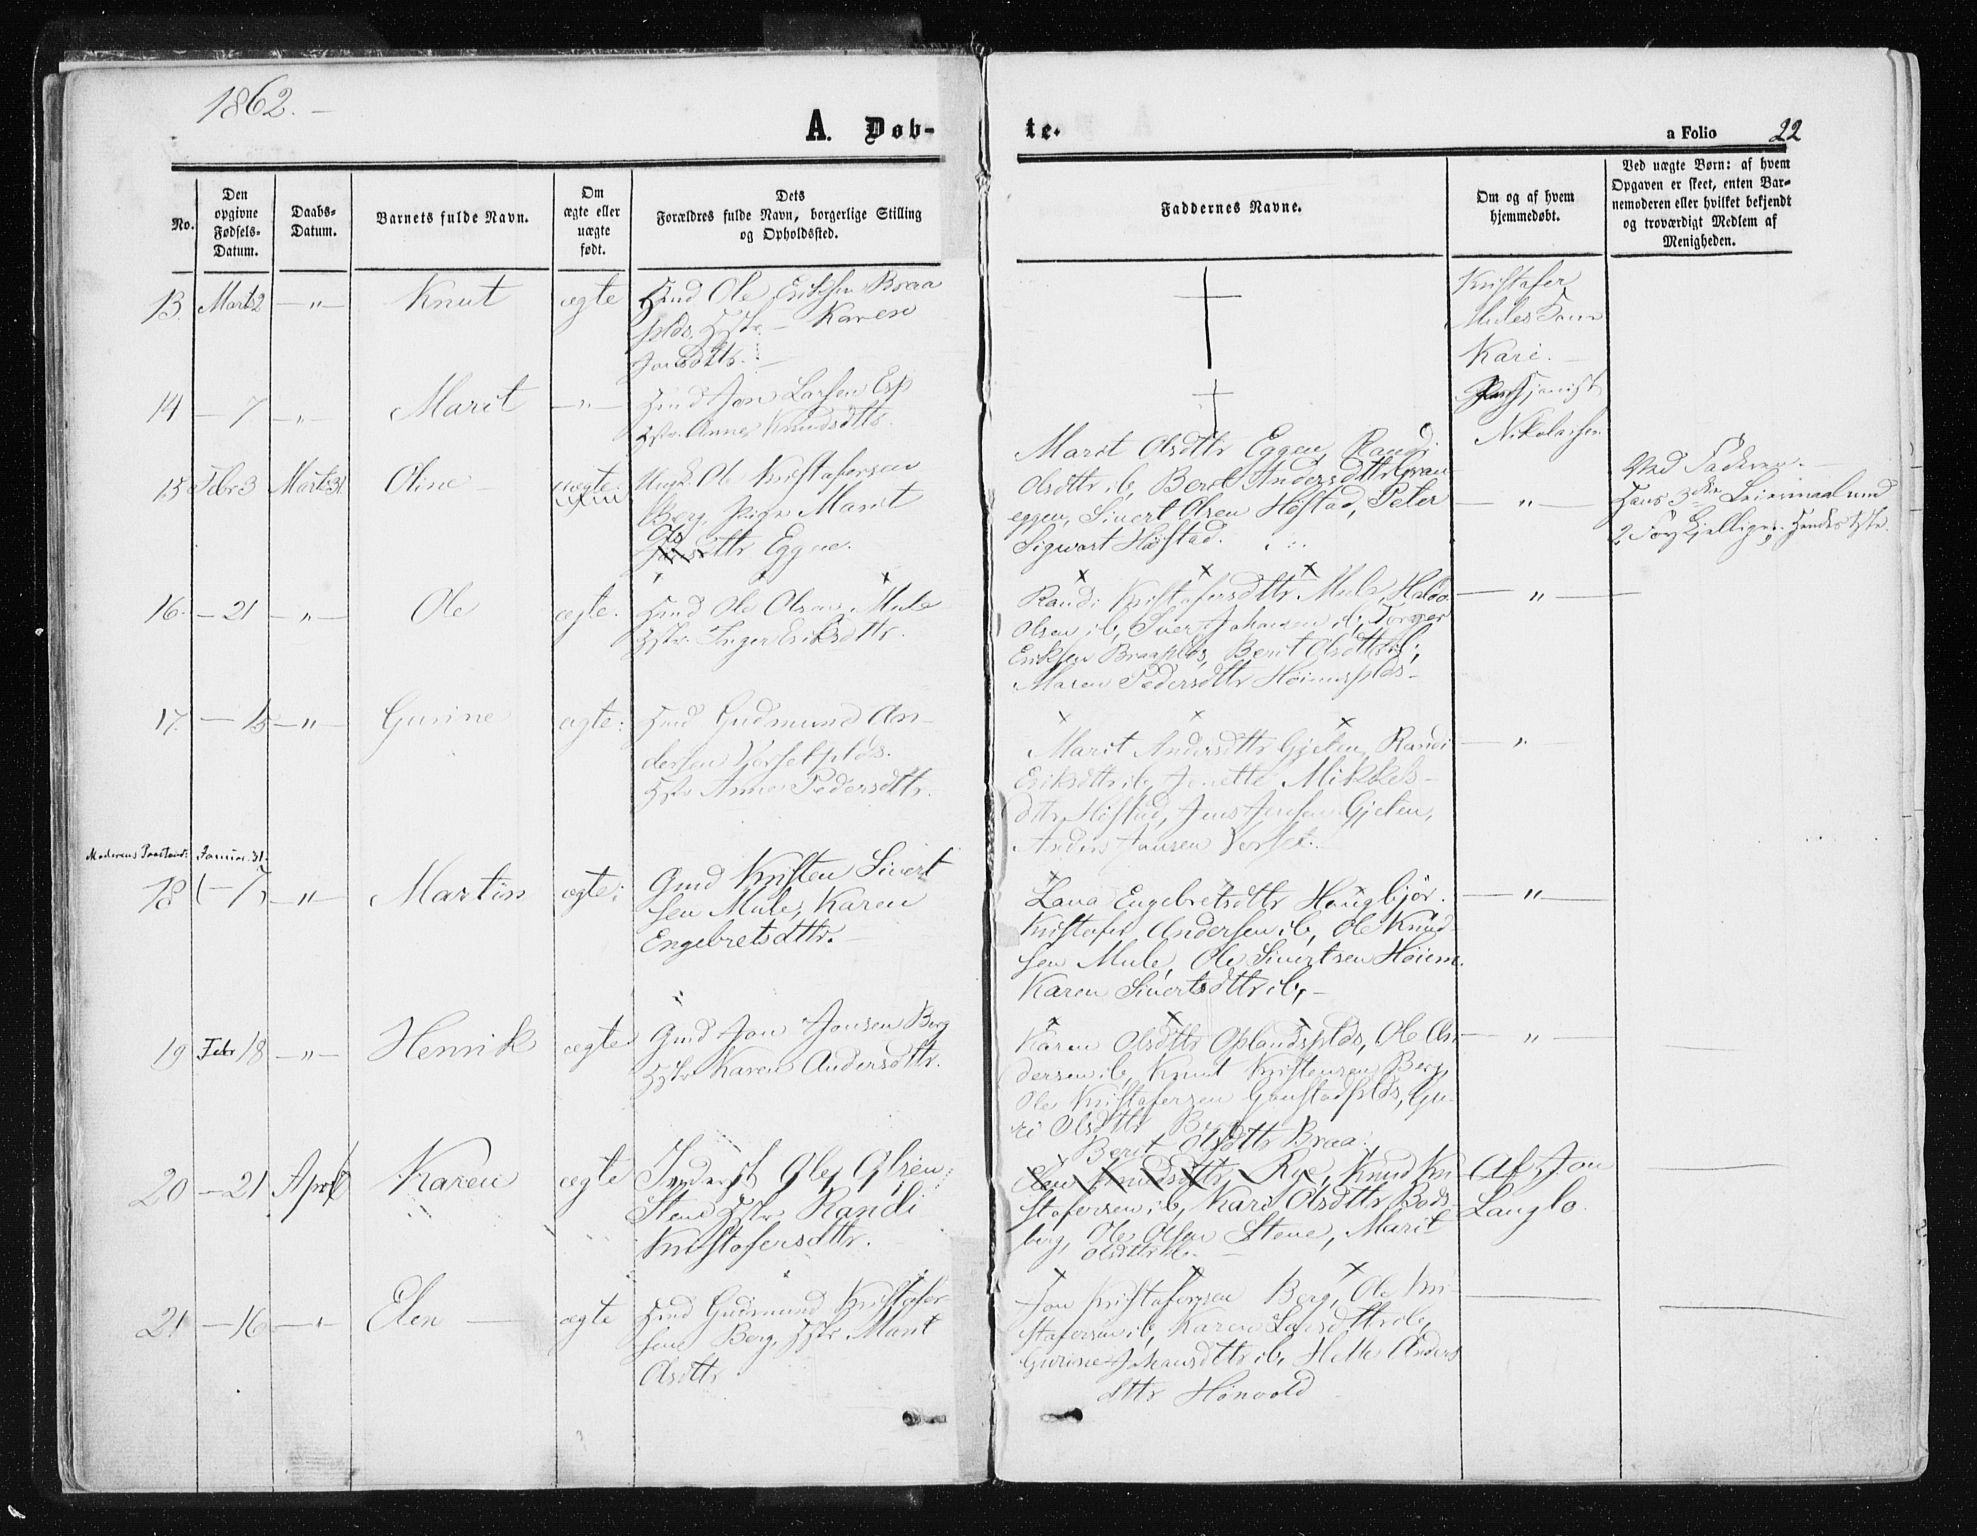 1862.
A. Døb-
te.
a Folio 22
No.
Den opgivne Fødsels-Datum.
Daabs-Datum.
Barnets fulde Navn.
Om ægte eller uægte født.
Dets Forældres fulde Navn, borgerlige Stilling og Opholdssted.
Faddernes Navne.
Om og af hvem hjemmedøbt.
Ved uægte Børn: af hvem Opgaven er skeet, enten Barnemoderen eller hvilket bekjendt og troværdigt Medlem af Menigheden.
13. Marts 2 — " — Knut ægte Hmd Ole Eriksen Braa
plds. Hstr. — Karen
Jonsdttr. —
Kristofer
Mules Kone
Kari. —
14 — 7 — " — Marit — " — Hmd Jon Larsen Esp
Hstr. Anne Knudsdttr.
Nikolaisen
15 Febr 3 Marts 31 Oline — uægte. Ungk. Ole Kristofersen
Berg, Pige Marit
Ols
dttr Eggen.
Marit Olsdttr Eggen, Randi
Olsdttr ib, Berit Andersdttr Gran-
eggen, Sivert Olsen Høstad, Peter
Sigvart Høstad.
— " —
Ved Faderen. —
Hans 3die Leiermaal med
16. — 21 — " — Ole ægte. Hmd Ole Olsen Mule
Hstr. Inger Eriksdttr.
Randi Kristofersdttr Mule, Haldo
Olsen ib, Iver Johansen ib,
Eriksen Braaplds, Berit Olsdttr ib,
Maren Pedersdttr Høiemsplds —
— " —
17. — 15 — " — Gurine ægte. Hmd Gudmund An-
dersen Vorsetplds.
Hstr Anne Pedersdttr.
Marit Andersdttr Gjeten, Randi
Eriksdttr ib, Jonette Mikkels-
dttr Høstad, Jens Jensen Gjeten,
Anders Jonsen Vorset.
— " —
Moderens Paastand: Januar 31.
18 (— 7) — " — Martin ægte; Gmd Kristen Sivert
sen Mule, Karen
Engebretsdttr. —
Lana Engebretsdttr Haugbjør.
Kristofer Andersen ib, Ole Knud
sen Mule, Ole Sivertsen Høiem.
Karen Sivertsdttr ib, —
— " —
19 Febr 18 — " — Henrik ægte Gmd Jon Jonsen Berg
Hstr Karen Andersdttr.
Karen Olsdttr Oplandsplds, Ole An
dersen ib, Knut Kristensen Berg,
Ole Kristofersen Gaustadplds, Gu-
ri Olsdttr Berg
— " —
20 — 21 April Karen ægte Inderst Ole Olsen
Stene Hstr Randi
Kristofersdttr.
Berit Olsdttr Braa.
Knudsdttr Rye, Knud Kri
stofersen ib, Kari Olsdttr Bods-
berg, Ole Olsen Stene, Marit
Olsdttr ib. —
Af Jon
Langlo.
21 — 16 — " — Elen — ægte Hmd Gudmund Kristofer
sen Berg, Hstr Marit
Olsdttr
Jon Kristofersen Berg, Ole Kri
stofersen ib, Karen Larsdttr ib,
Gurine Johansdttr ib, Anders
dttr Hønvold